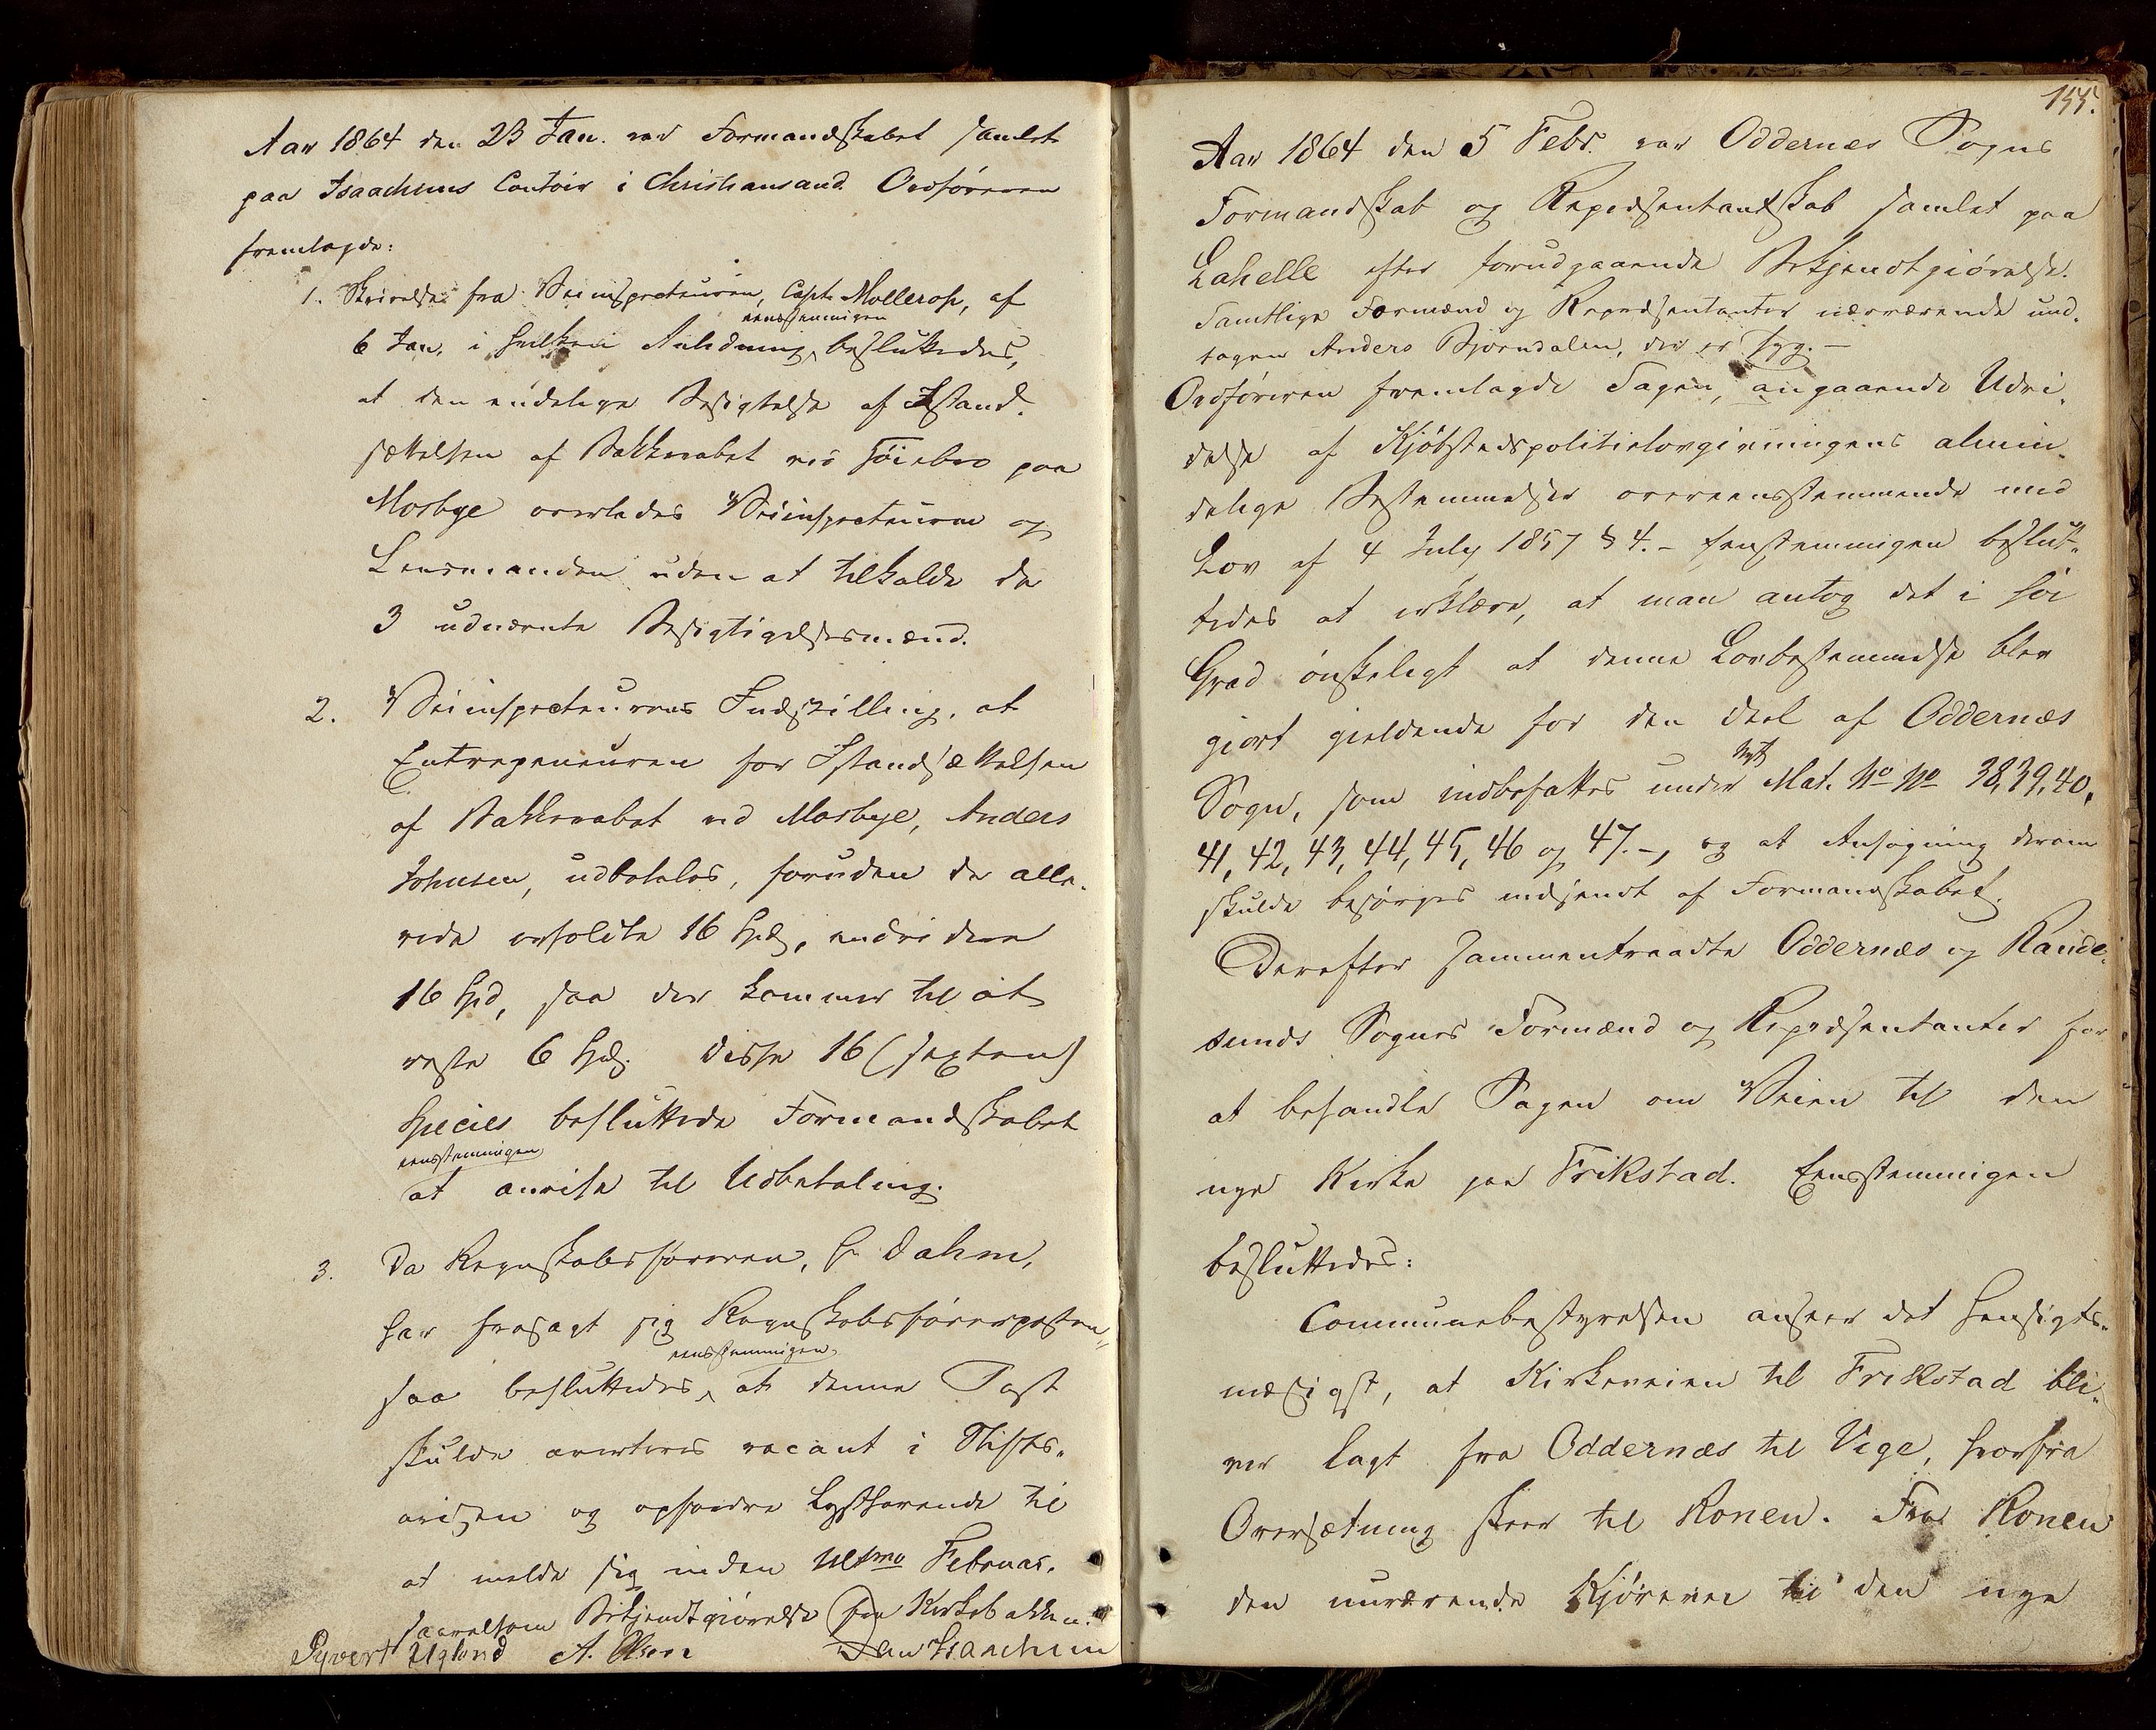 Aar 1864 den 23 Jan. var Formandskabet samlet
paa Isaachsens Contoir i Christiansand. Ordføreren
fremlagde:
1. Skrivelse fra Veiinspecteuren, Capt. Møllerop, af
eensstemmigen
6 Jan. i hvilken Anledning besluttedes,
at den endelige Besigtelse af Istand-
sættelsen af Bakkevabet ved Høiebro paa
Mosbye overlades Veiinspecteuren og
Lensmanden uden at tilkalde de
3 udnævnte Besigtigelsesmænd.
2. Veiinspecteurens Indstilling, at
Entrepeneuren for Istandsættelsen
af Bakkevabet ved Mosbye, Anders
Johnsen, udbetales, foruden de alle-
rede erholdte 16 Spd, endvidere
16 Spd, saa der kommer til at
reste 6 Spd. Disse 16 (sexten)
Species besluttede Formandskabet
eensstemmigen
at anvise til Udbetaling.
3. Da Regnskabsføreren, Hr Dahm,
har frasagt sig Regnskabsførerposten,
eensstemmigen
saa besluttedes, at denne Post
skulde averteres vacant i Stifts-
avisen og opfordre Lysthavende til
at melde sig inden Ultmo Februar,
saavelsom Bekjendtgiørelse paa Kirkebakken.
Syvert Ugland A. Olsen Dan Isaachsen
155.
Aar 1864 den 5 Febr. var Oddernes Sogns
Formandskab og Repræsentantskab samlet paa
Lahelle efter forudgaaende Bekjendtgiørelse.
Samtlige Formænd og Repræsentanter nærværende und-
tagen Anders Bjørndalen, der er syg. –
Ordføreren fremlagde Sagen, angaaende Udvi-
delse af Kjøbstadspolitielovgivningens almin-
delige Bestemmelser overeensstemmende med
Lov af 4 July 1857 § 4. – Eenstemmigen beslut-
tedes at erklære, at man antog det i høi
Grad ønskeligt at denne Lovbestemmelse blev
giort gieldende for den Deel af Oddernæs
nyt
Sogn, som indbefattes under Mat. No No 38, 39, 40,
41, 42, 43, 44, 45, 46 og 47. –, og at Ansøgning derom
skulde besørges indsendt af Formandskabet.
Derefter sammentraadte Oddernæs og Rande-
sunds Sognes Formænd og Repræsentanter for
at behandle Sagen om Veien til den
nye Kirke paa Frikstad. Eensstemmigen
besluttedes:
Communebestyrelsen anseer det hensigts-
mæsigst, at Kirkeveien til Frikstad bli-
ver lagt fra Oddernæs til Vige, hvorfra
Oversætning skeer til Ronen. Fra Ronen
den nuværende Kjørevei til den nye